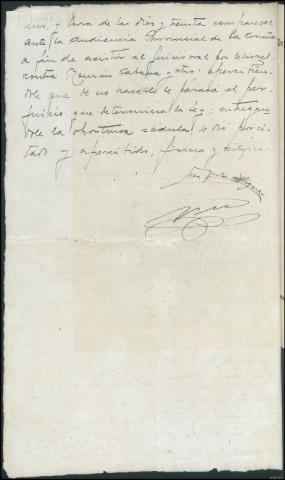 y hora de las diez y treinta comparezca
ante la Audiencia Provincial de La Coruña
a fin de asistir al juicio oral por lesiones
contra Román Cabana y otro; apercibien-
dole que de no hacerlo le parará el per-
juicio que determina la ley; entregan-
dole la oportuna cedula, se dió por ci-
tado y apercibido, firma y certifico.